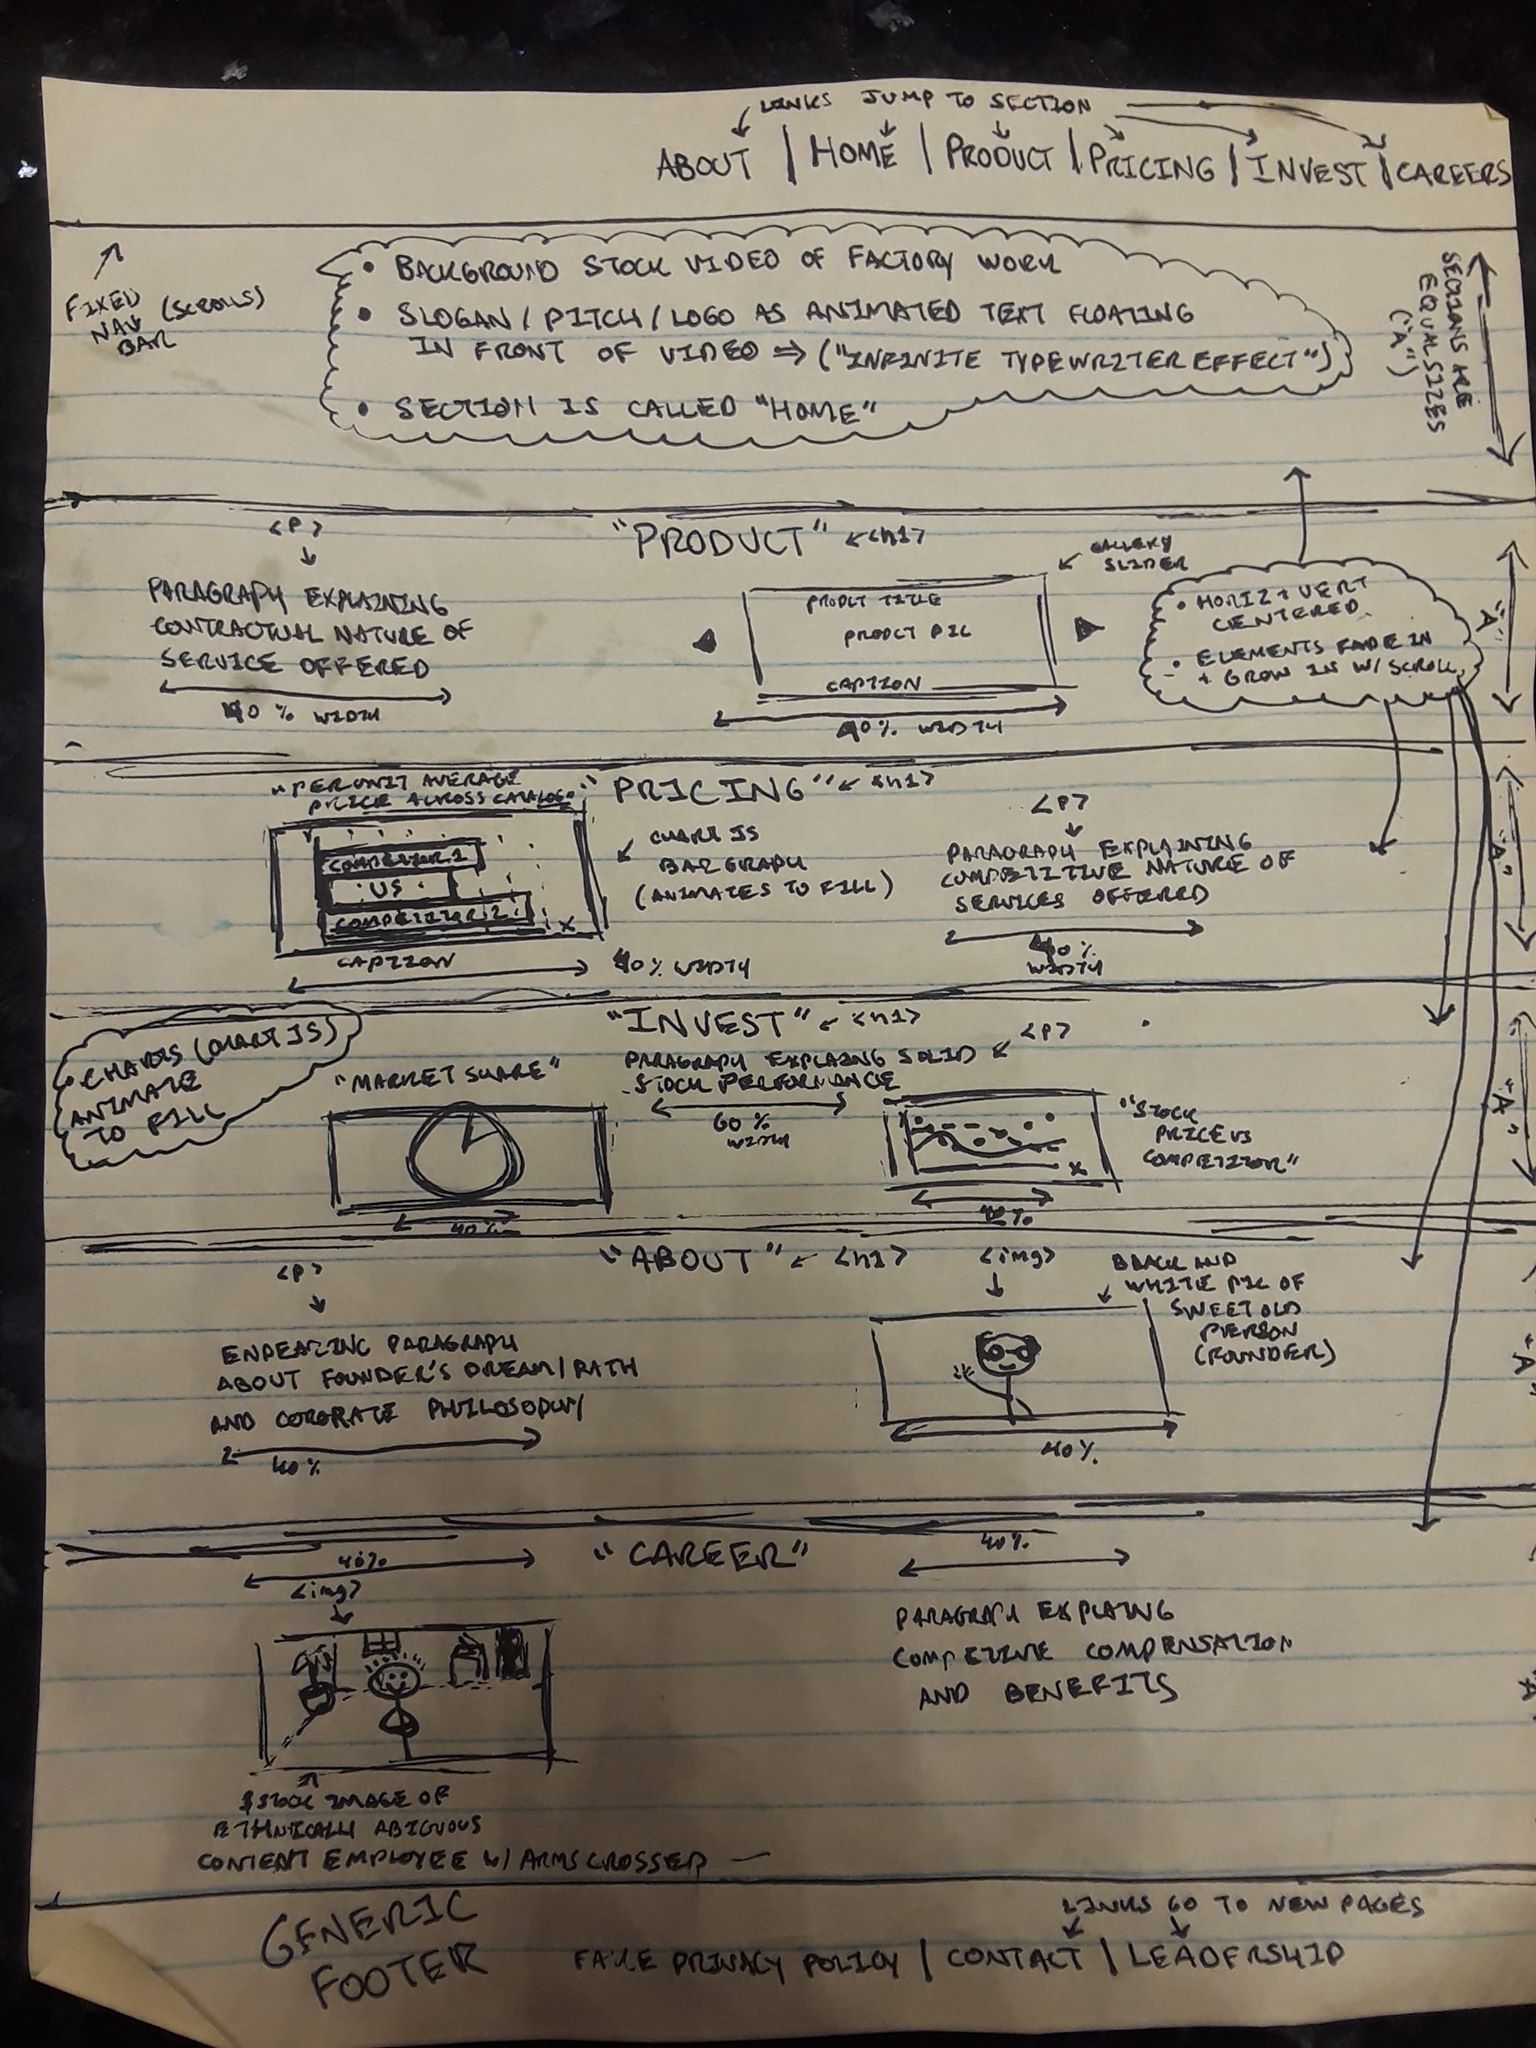 LINKS JUMP TO SECTION
ABOUT | HOME | PRODUCT | PRICING | INVEST | CAREERS
FIXED (SCROLLS)
NAV
BAR
• BACKGROUND STOCK VIDEO OF FACTORY WORK
• SLOGAN / PITCH / LOGO AS ANIMATED TEXT FLOATING
IN FRONT OF VIDEO => ("INFINITE TYPEWRITER EFFECT")
• SECTION IS CALLED "HOME"
SECTIONS ARE
EQUAL SIZES
("A")
<P>
"PRODUCT" <h1>
GALLERY
SLIDER
PARAGRAPH EXPLAINING
CONTRACTUAL NATURE OF
SERVICE OFFERED
40% WIDTH
PRODCT TITLE
PRODCT PIC
CAPTION
40% WIDTH
• HORIZ + VERT
CENTERED
• ELEMENTS FADE IN
+ GROW IN W/ SCROLL
"A"
"PER UNIT AVERAGE
PRICE ACROSS CATALOG"
"PRICING" <h1>
COMPETITOR 1
US
COMPETITOR 2
X
CAPTION
40% WIDTH
CHART JS
BAR GRAPH
(ANIMATES TO FILL)
<P>
PARAGRAPH EXPLAINING
COMPETITIVE NATURE OF
SERVICES OFFERED
40%
WIDTH
"A"
• CHARTS (CHART JS)
ANIMATE
TO FILL
"INVEST" <h1>
<P>
"MARKET SHARE"
PARAGRAPH EXPLAING SOLID
STOCK PERFORMANCE
60%
WIDTH
40%
X
"STOCK
PRICE VS
COMPETITOR"
40%
"A"
"ABOUT" <h1>
<P>
ENDEARING PARAGRAPH
ABOUT FOUNDER'S DREAM/PATH
AND CORORATE PHILOSOPHY
40%
<img>
BLACK AND
WHITE PIC OF
SWEET OLD
PERSON
(FOUNDER)
40%
"A"
"CAREER"
40%
<img>
$ STOCK IMAGE OF
ETHNICALLY ABIGUOUS
CONTENT EMPLOYEE W/ ARMS CROSSED
40%
PARAGRAPH EXPLAING
COMPETIIVE COMPENSATION
AND BENEFITS
"A
GENERIC
FOOTER
LINKS GO TO NEW PAGES
FAKE PRIVACY POLICY | CONTACT | LEADERSHIP